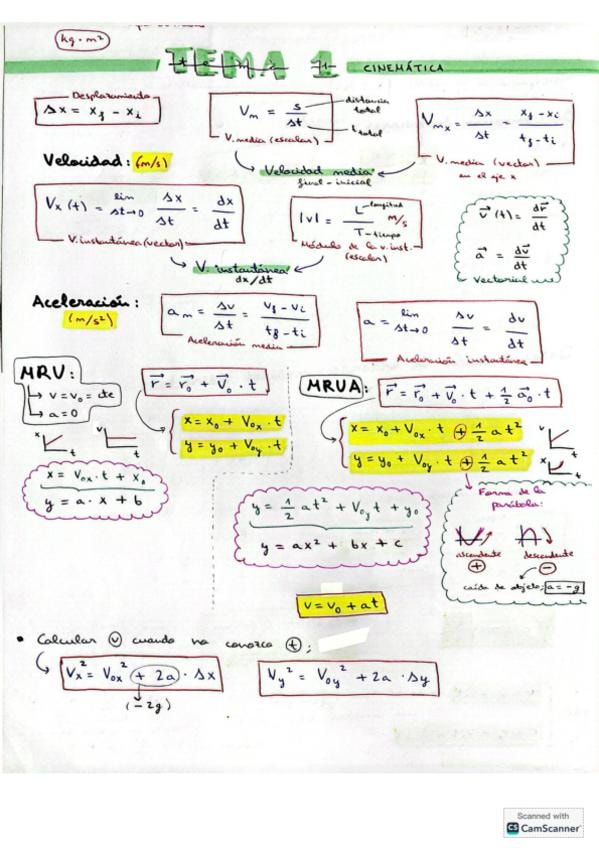 kg · m²
TEMA 1 CINEMÁTICA
Desplazamiento
Δx = x_f - x_i
V_m = s/Δt
distancia total
t total
V. media (escalar)
V_mx = Δx/Δt = (x_f - x_i)/(t_f - t_i)
V. media (vector)
en el eje x
Velocidad: (m/s)
Velocidad media
final - inicial
V_x (t) = lim Δt→0 Δx/Δt = dx/dt
V. instantánea (vector)
|v| = L/T m/s
longitud
tiempo
Módulo de la v. inst.
(escalar)
V. instantánea
dx/dt
v⃗ (t) = dr⃗/dt
a⃗ = dv⃗/dt
Vectorial
Aceleración:
(m/s²)
a_m = Δv/Δt = (v_f - v_i)/(t_f - t_i)
Aceleración media
a = lim Δt→0 Δv/Δt = dv/dt
Aceleración instantánea
MRU:
v = v₀ = cte
a = 0
r⃗ = r⃗₀ + v⃗₀ · t
x = x₀ + V₀x · t
y = y₀ + V₀y · t
x
t
v
t
x = V₀x · t + x₀
y = a · x + b
MRUA:
r⃗ = r⃗₀ + v⃗₀ · t + 1/2 a⃗₀ · t
x = x₀ + V₀x · t + 1/2 a t²
y = y₀ + V₀y · t + 1/2 a t²
v
t
x
t
y = 1/2 at² + V₀y t + y₀
y = ax² + bx + c
Forma de la
parábola:
ascendente
descendente
+
-
caída de objeto; a = -g
v = v₀ + at
• Calcular v cuando no conozca t;
V_x² = V₀x² + 2a · Δx
(-2g)
V_y² = V₀y² + 2a · Δy
Scanned with
CS CamScanner